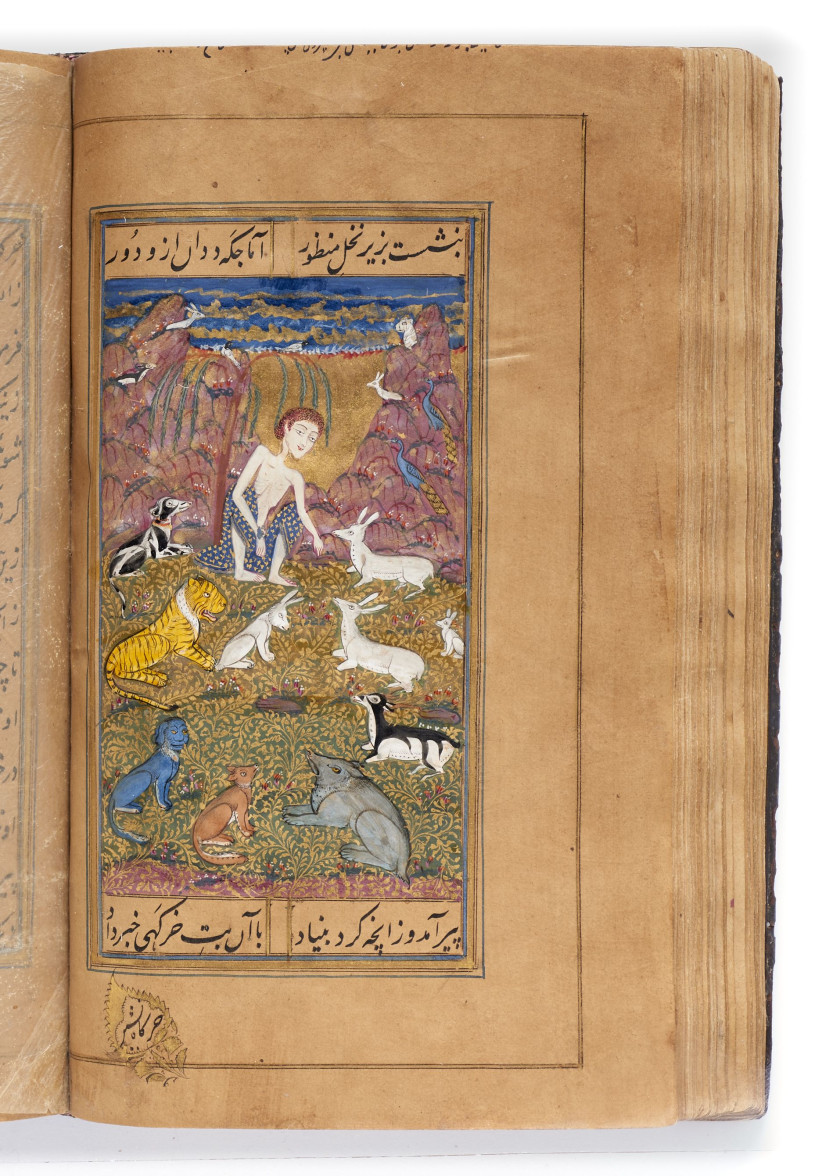 بنشست بزیر نخل منظور آماجگه ددان ازو دور
پیر آمد و زانچه کرد بنیاد با آن بت خرگهی خبر داد
خرگاه نشین